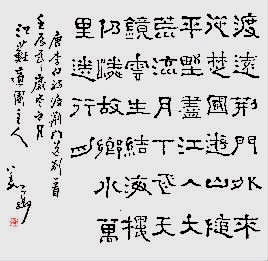 渡遠荊門外來
從楚國遊山隨
平野盡江入大
荒流月下飛天
鏡雲生結海樓
仍憐故鄉水萬
里送行舟
唐李白詩渡荊門送別一首
壬辰歲冬月
江蘇園主人